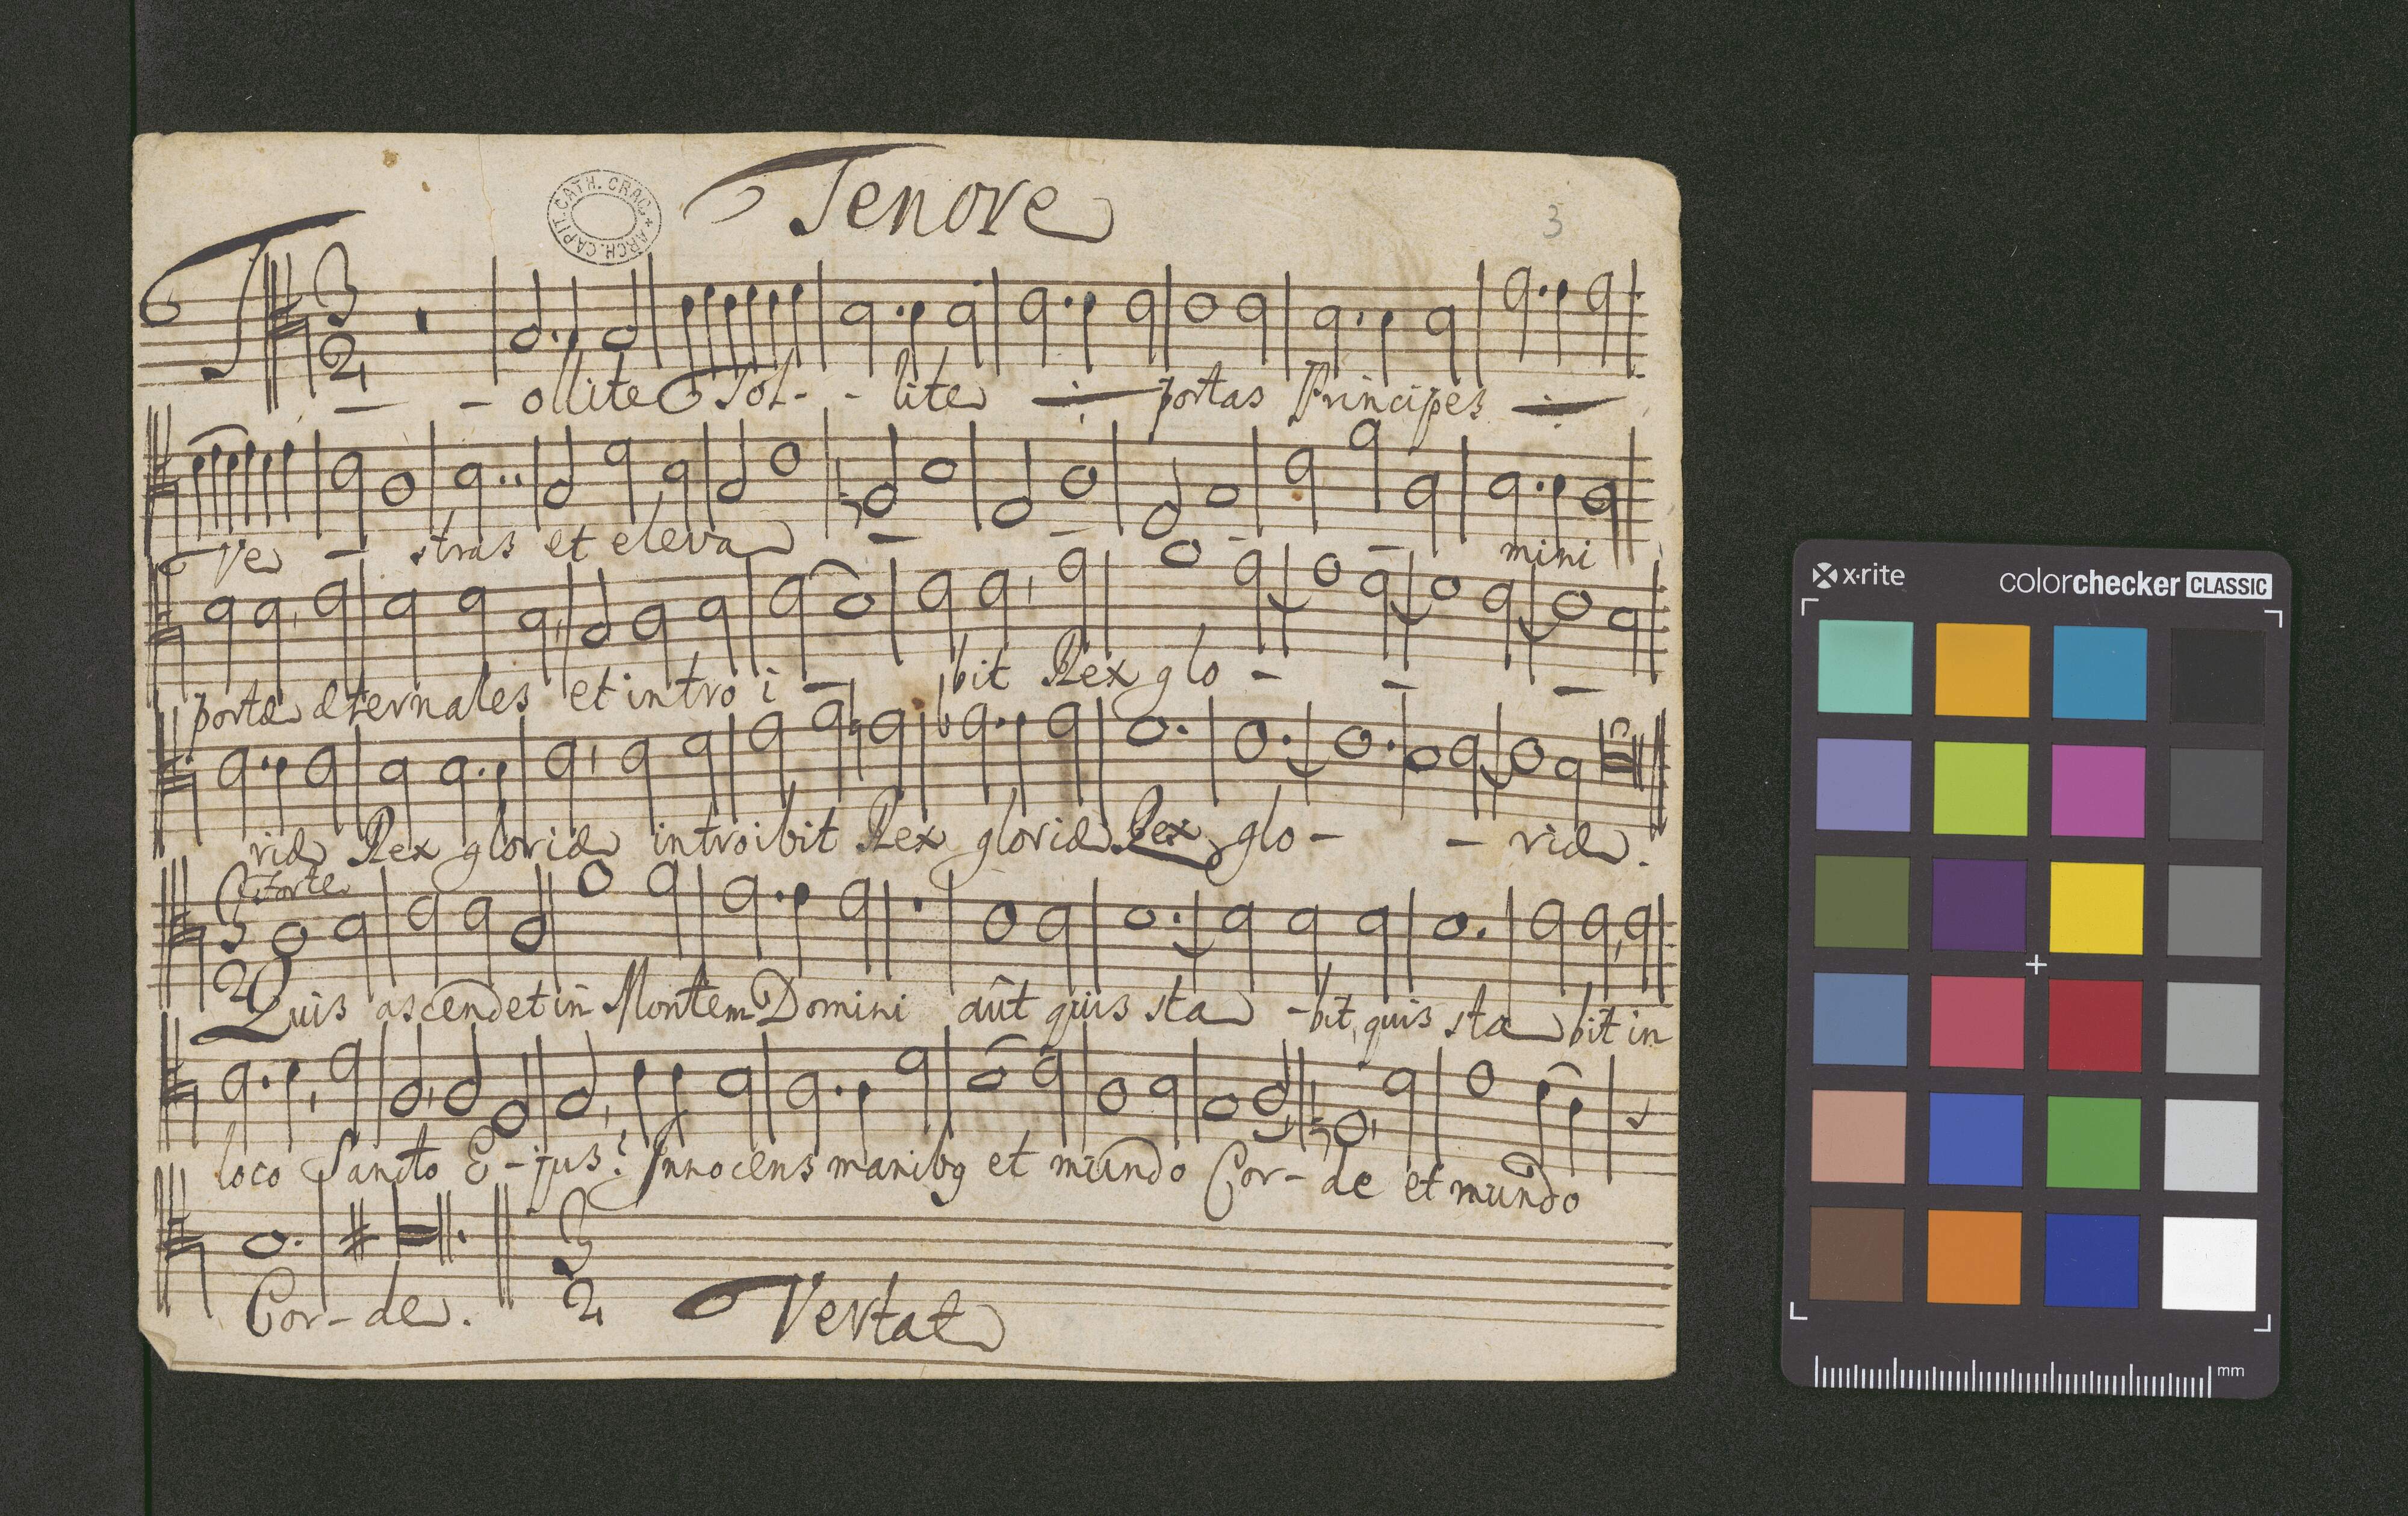 Tenore
ARCH. CAPIT. CATH. CRAC.
3
3
2
Tollite Tol - - lite portas Principes
Ve - stras et eleva - - - - mini
portæ æternales et intro i - bit Rex glo - - -
riæ Rex gloriæ introibit Rex gloriæ Rex glo - - riæ.
forte
3
2
Quis ascendet in Montem Domini aut quis sta - bit, quis sta bit in
loco Sancto E - jus? Innocens manibq et mundo Cor - de et mundo
Cor - de.
3
2
Vertat
x-rite
colorchecker CLASSIC
mm